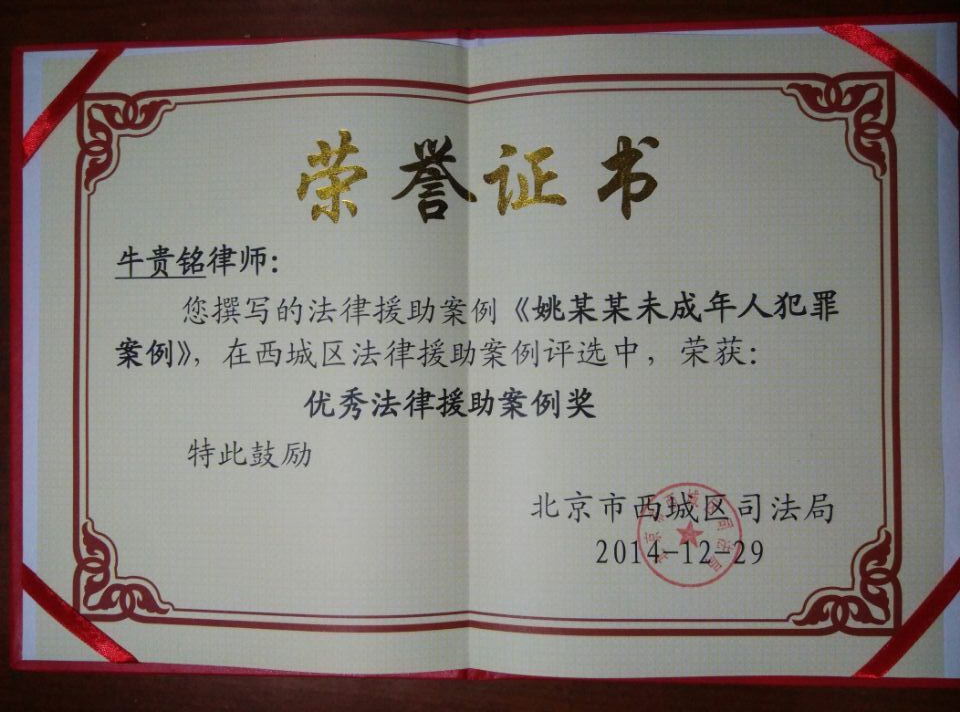 荣誉证书
牛贵铭律师：
您撰写的法律援助案例《姚某某未成年人犯罪
案例》，在西城区法律援助案例评选中，荣获：
优秀法律援助案例奖
特此鼓励
北京市西城区司法局
2014-12-29
北京市西城区司法局